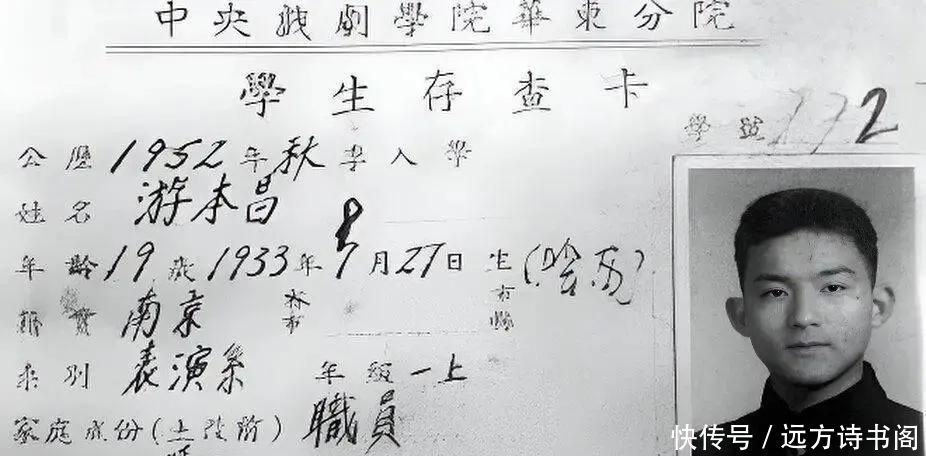 中央戏劇學院華東分院
學生存查卡
學號 172
公歷1952年秋季入學
姓名 游本昌
年齡19歲1933年 月27日生(陰历)
籍貫 南京 市 市縣
系別 表演系 年級 一上
家庭成份(土改前) 職員
快传号/远方诗书阁